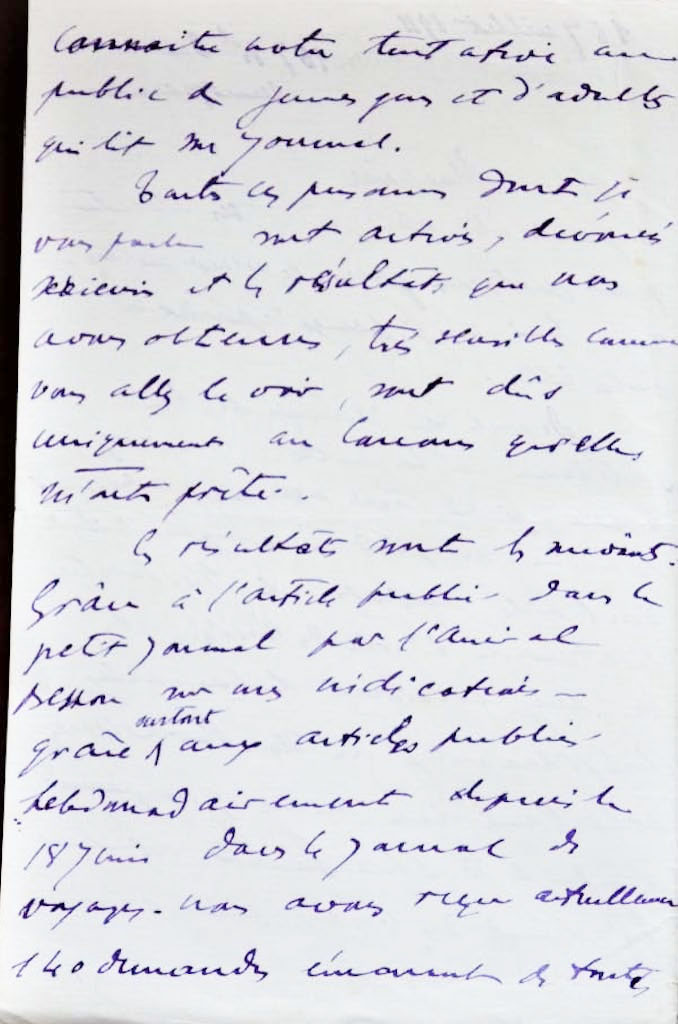 connaître notre tentative au
public de jeunes gens et d'adultes
qui lit son journal.
Toutes ces personnes dont je
vous parle sont actives, dévouées
et les résultats que nous
avons obtenus, très sensibles comme
vous allez le voir, sont dûs
uniquement au concours qu'elles
m'ont prêté.
Les résultats sont les suivants.
Grâce à l'article publié dans le
petit journal par l'Amiral
Besson sur mes indications -
grâce surtout aux articles publiés
hebdomadairement depuis le
18 juin dans le Journal des
voyages - nous avons reçu actuellement
140 demandes émanant de toutes